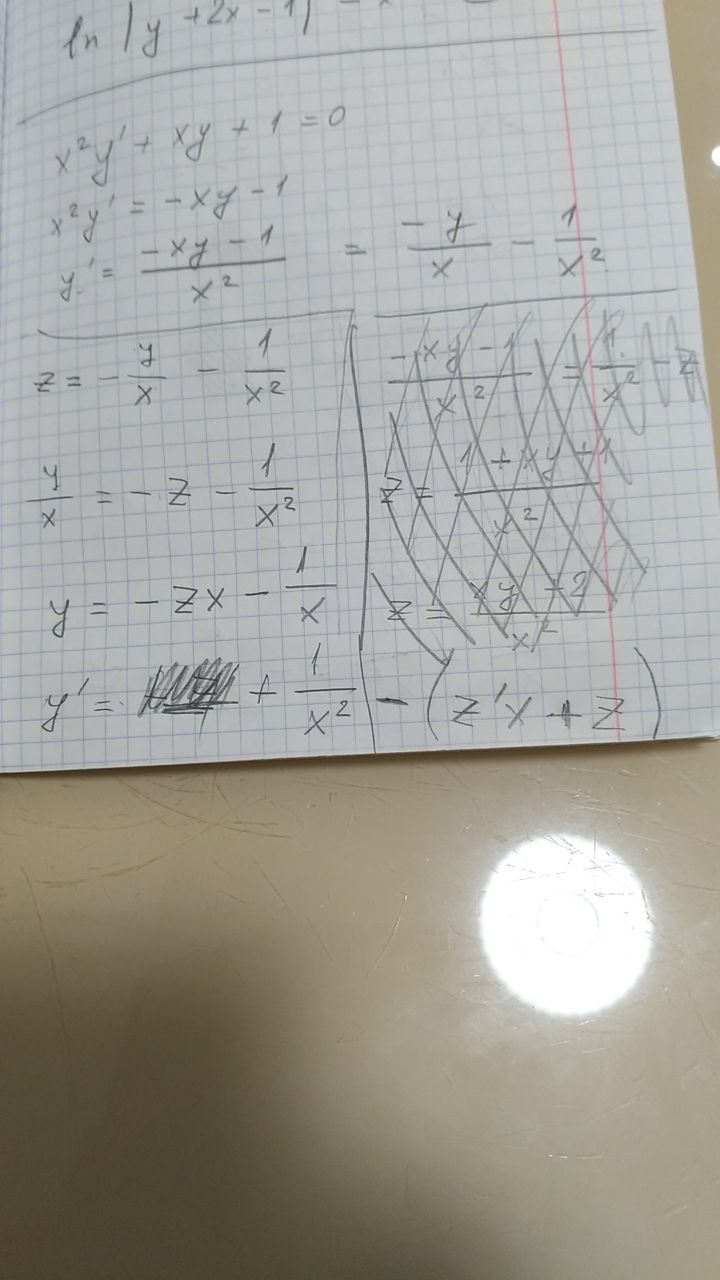 ln |y + 2x - 1|
x²y' + xy + 1 = 0
x²y' = -xy - 1
y' = (-xy - 1)/x² = -y/x - 1/x²
z = -y/x - 1/x²
y/x = -z - 1/x²
y = -zx - 1/x
y' = + 1/x² - (z'x + z)
(-xy - 1)/x² = 1/x² - z
z = (1 + xy + 1)/x²
z = (xy + 2)/x²